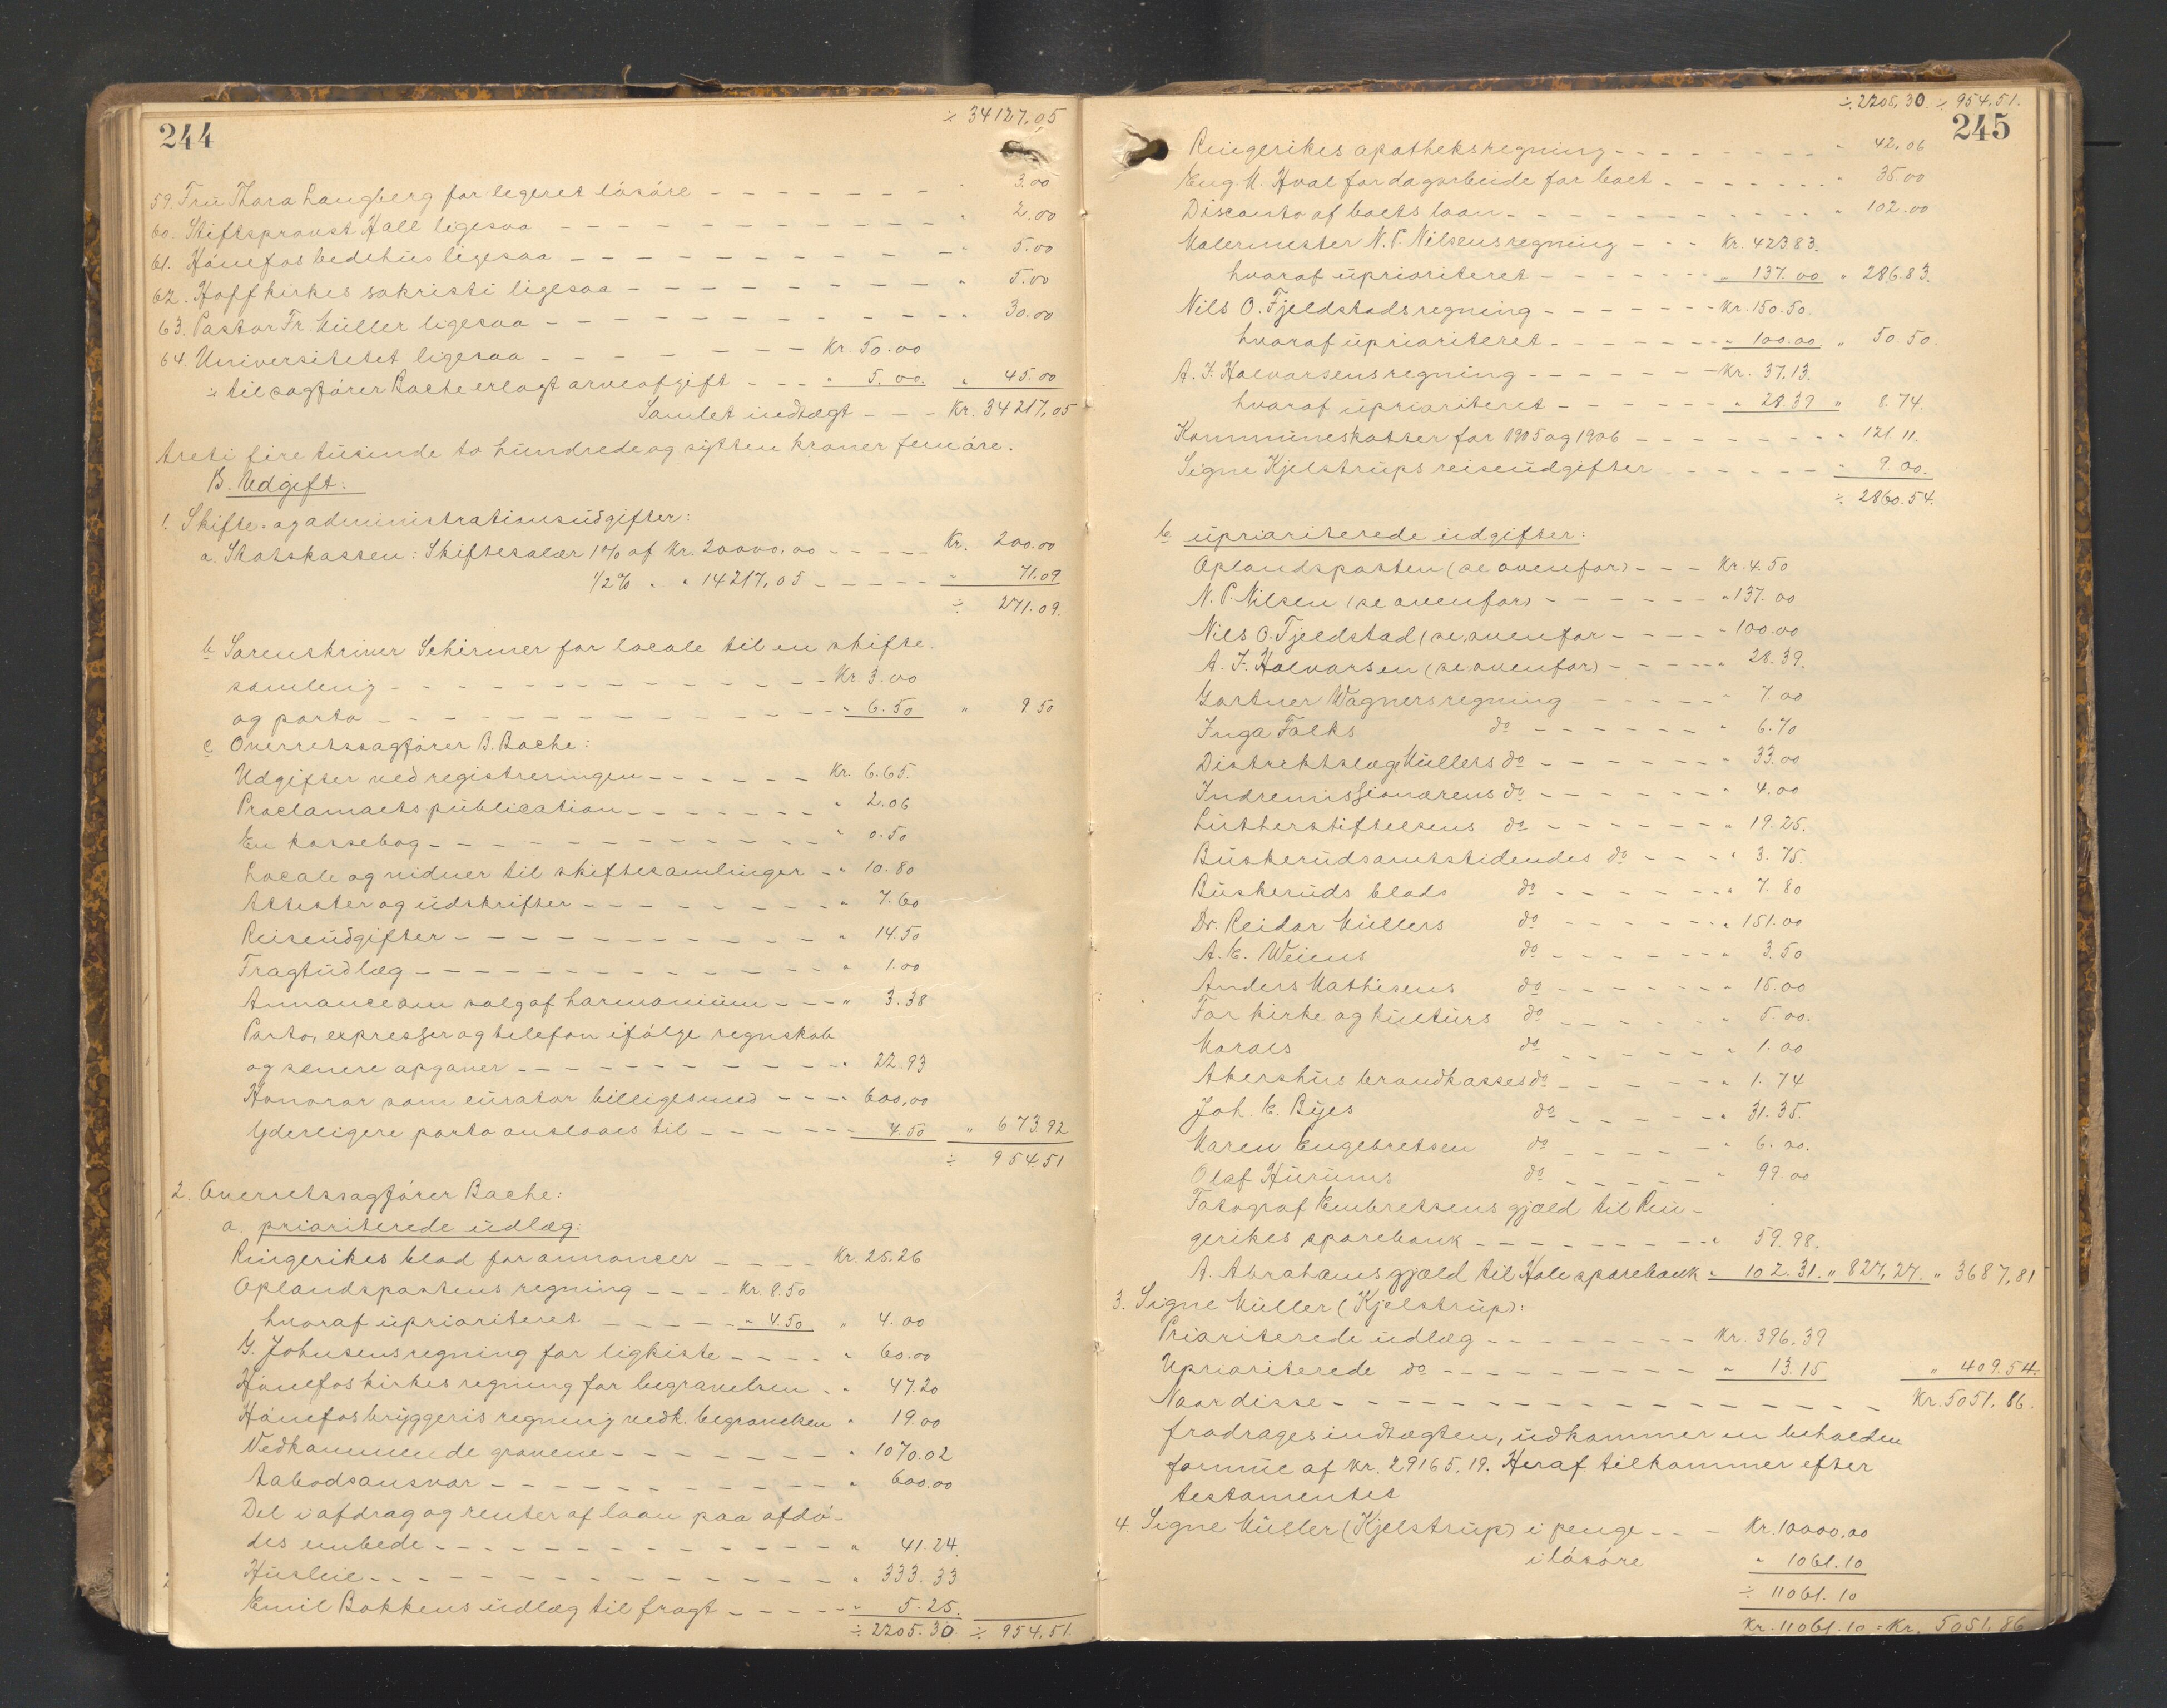 244
÷ 34127,05
59. Fru Thora Langberg for legeret løsøre - - - " 3.00
60. Stiftsprovst Hall ligesaa - - - " 2.00
61. Hønefos bedehus ligesaa - - - " 5.00
62. Hoff kirkes sakristi ligesaa - - - " 5.00
63. Pastor Fr. Müller ligesaa - - - " 30.00
64. Universitetet ligesaa - - - Kr. 50.00
÷ til sagfører Bache erlagt arveafgift - - - " 5.00. " 45.00
Samlet indtægt - - - Kr. 34217,05
treti fire tusinde to hundrede og sytten kroner fem øre.
B. Udgift:
1. Skifte- og administrationsudgifter:
a. Statskassen: Skiftesalær 1% af Kr. 20000,00 - - - Kr. 200.00
1/2% " " 14217,05 - - - " 71.09
÷ 271.09.
b Sorenskriver Schirmer for locale til en skifte-
samling - - - Kr. 3.00
og porto - - - " 6.50 " 9 50
c Overretssagfører B. Bache:
Udgifter ved registreringen - - - Kr. 6.65.
Proclamaets publication - - - " 2.06
En kassebog - - - " 0.50
Locale og vidner til skiftesamlinger - " 10.80
Attester og udskrifter - - - " 7.60
Reiseudgifter - - - " 14.50
Fragtudlæg - - - " 1.00
Annonce om salg af harmonium - - - " 3.38
Porto, expresser og telefon ifølge regnskab
og senere opgaver - - - " 22.93
Honorar som curator billiges med - - - " 600,00
Yderligere porto ansloaes til - - - 4.50 " 673.92
÷ 954.51
2. Overretssagfører Bache:
a. prioriterede udlæg:
Ringerikes blad for annoncer - - - Kr. 25.26
Oplandspostens regning - - - Kr. 8.50
hvoraf uprioriteret - - - " 4.50 " 4.00
G. Johnsens regning for ligkiste - - - " 60.00
Hønefos kirkes regning for begravelsen - " 47.20
Hønefos bryggeris regning vedk. begravelsen " 19.00
Vedkommende gravene - - - " 1070.02
Aabodsansvar - - - " 600.00
Del i afdrag og renter af laan paa afdø-
des embede - - - " 41.24.
Husleie - - - " 333.33
Emil Bakkens udlæg til fragt - - - " 5.25.
÷ 2205.30. ÷ 954,51.
÷ 2205,30. ÷ 954,51.
245
Ringerikes apotheksregning - - - " 42,06
Eug. M. Hval for dagarbeide for boet - - - " 35.00
Disconto af boets laan - - - " 102.00
Malermester N. P. Nilsens regning - - - Kr. 423.83.
hvoraf uprioriteret - - - " 137.00 " 286.83.
Nils O. Fjeldstads regning - - - Kr. 150.50.
hvoraf uprioriteret - - - " 100.00 " 50.50.
A. F. Halvorsens regning - - - Kr. 37.13.
hvoraf uprioriteret - - - " 28.39 " 8.74.
Kommuneskatter for 1905 og 1906 - - - " 121.11.
Signe Kjelstrups reiseudgifter - - - " 9.00.
÷ 2860.54.
b uprioriterede udgifter:
Oplandsposten (se ovenfor) - - - Kr. 4.50
N. P. Nilsen (se ovenfor) - - - " 137.00
Nils O. Fjeldstad (se ovenfor - - - " 100.00
A. F. Halvorsen (se ovenfor) - - - " 28.39.
Gartner Wagners regning - - - " 7.00
Inga Falks do - - - " 6.70
Distriktslæge Müllers do - - - " 33.00
Indremissionærens do - - - " 4.00
Lutherstiftelsens do - - - " 19.25.
Buskerudsamtstidendes do - - - " 3.75.
Buskeruds blads do - - - " 7.80
Dr. Reidar Müllers do - - - " 151.00
A. E. Weiens do - - - " 3.50
Anders Mathisens do - - - " 15.00
For kirke og kulturs do - - - " 5.00.
Maraes do - - - " 1.00
Akershus brandkasses do - - - " 1.74
Joh. E. Byes do - - - " 31.35.
Maren Engebretsen do - - - " 6.00.
Olaf Hurums do - - - " 99.00
Fotograf Embretsens gjæld til Rin-
gerikes sparebank - - - " 59.98.
A. Abrahams gjæld til Hole sparebank " 102.31. " 827,27. " 3687,81
3. Signe Müller (Kjelstrup):
Prioriterede udlæg - - - Kr. 396,39
Uprioriterede do - - - " 13.15 " 409.54.
Naar disse - - - Kr. 5051,86.
fradrages indtægten, udkommer en beholden
formue af Kr. 29165,19. Heraf tilkommer efter
testamentet
4. Signe Müller (Kjelstrup) i penge - - - Kr. 10000,00
i løsøre " 1061.10
÷ 11061.10
Kr. 11061.10 - Kr. 5051.86